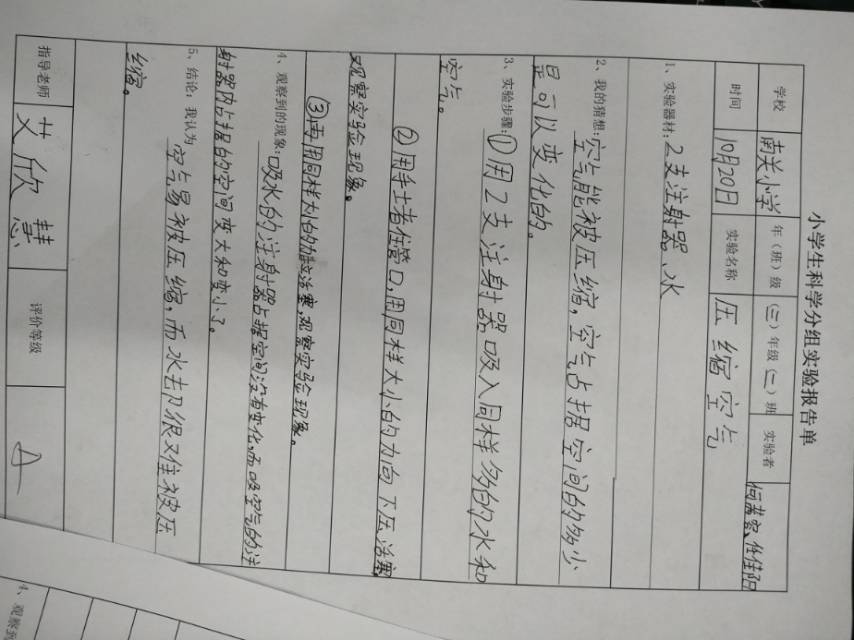 小学生科学分组实验报告单
学校 南关小学 年（班）级 （三）年级（二）班 实验者 佳阳
时间 10月20日 实验名称 压缩空气
1、实验器材：2支注射器、水
2、我的猜想：空气能被压缩，空气占据空间的多少
是可以变化的。
3、实验步骤：①用2支注射器吸入同样多的水和
空气。
②用手堵住管口，用同样大小的力向下压活塞
观察实验现象。
③再用同样大的力拉活塞，观察实验现象。
4、观察到的现象：吸水的注射器占据空间没有变化，而吸空气的注
射器内占据的空间变大和变小了。
5、结论：我认为 空气易被压缩，而水却很难被压
缩。
指导老师 艾欣慧 评价等级 A
4、观察到